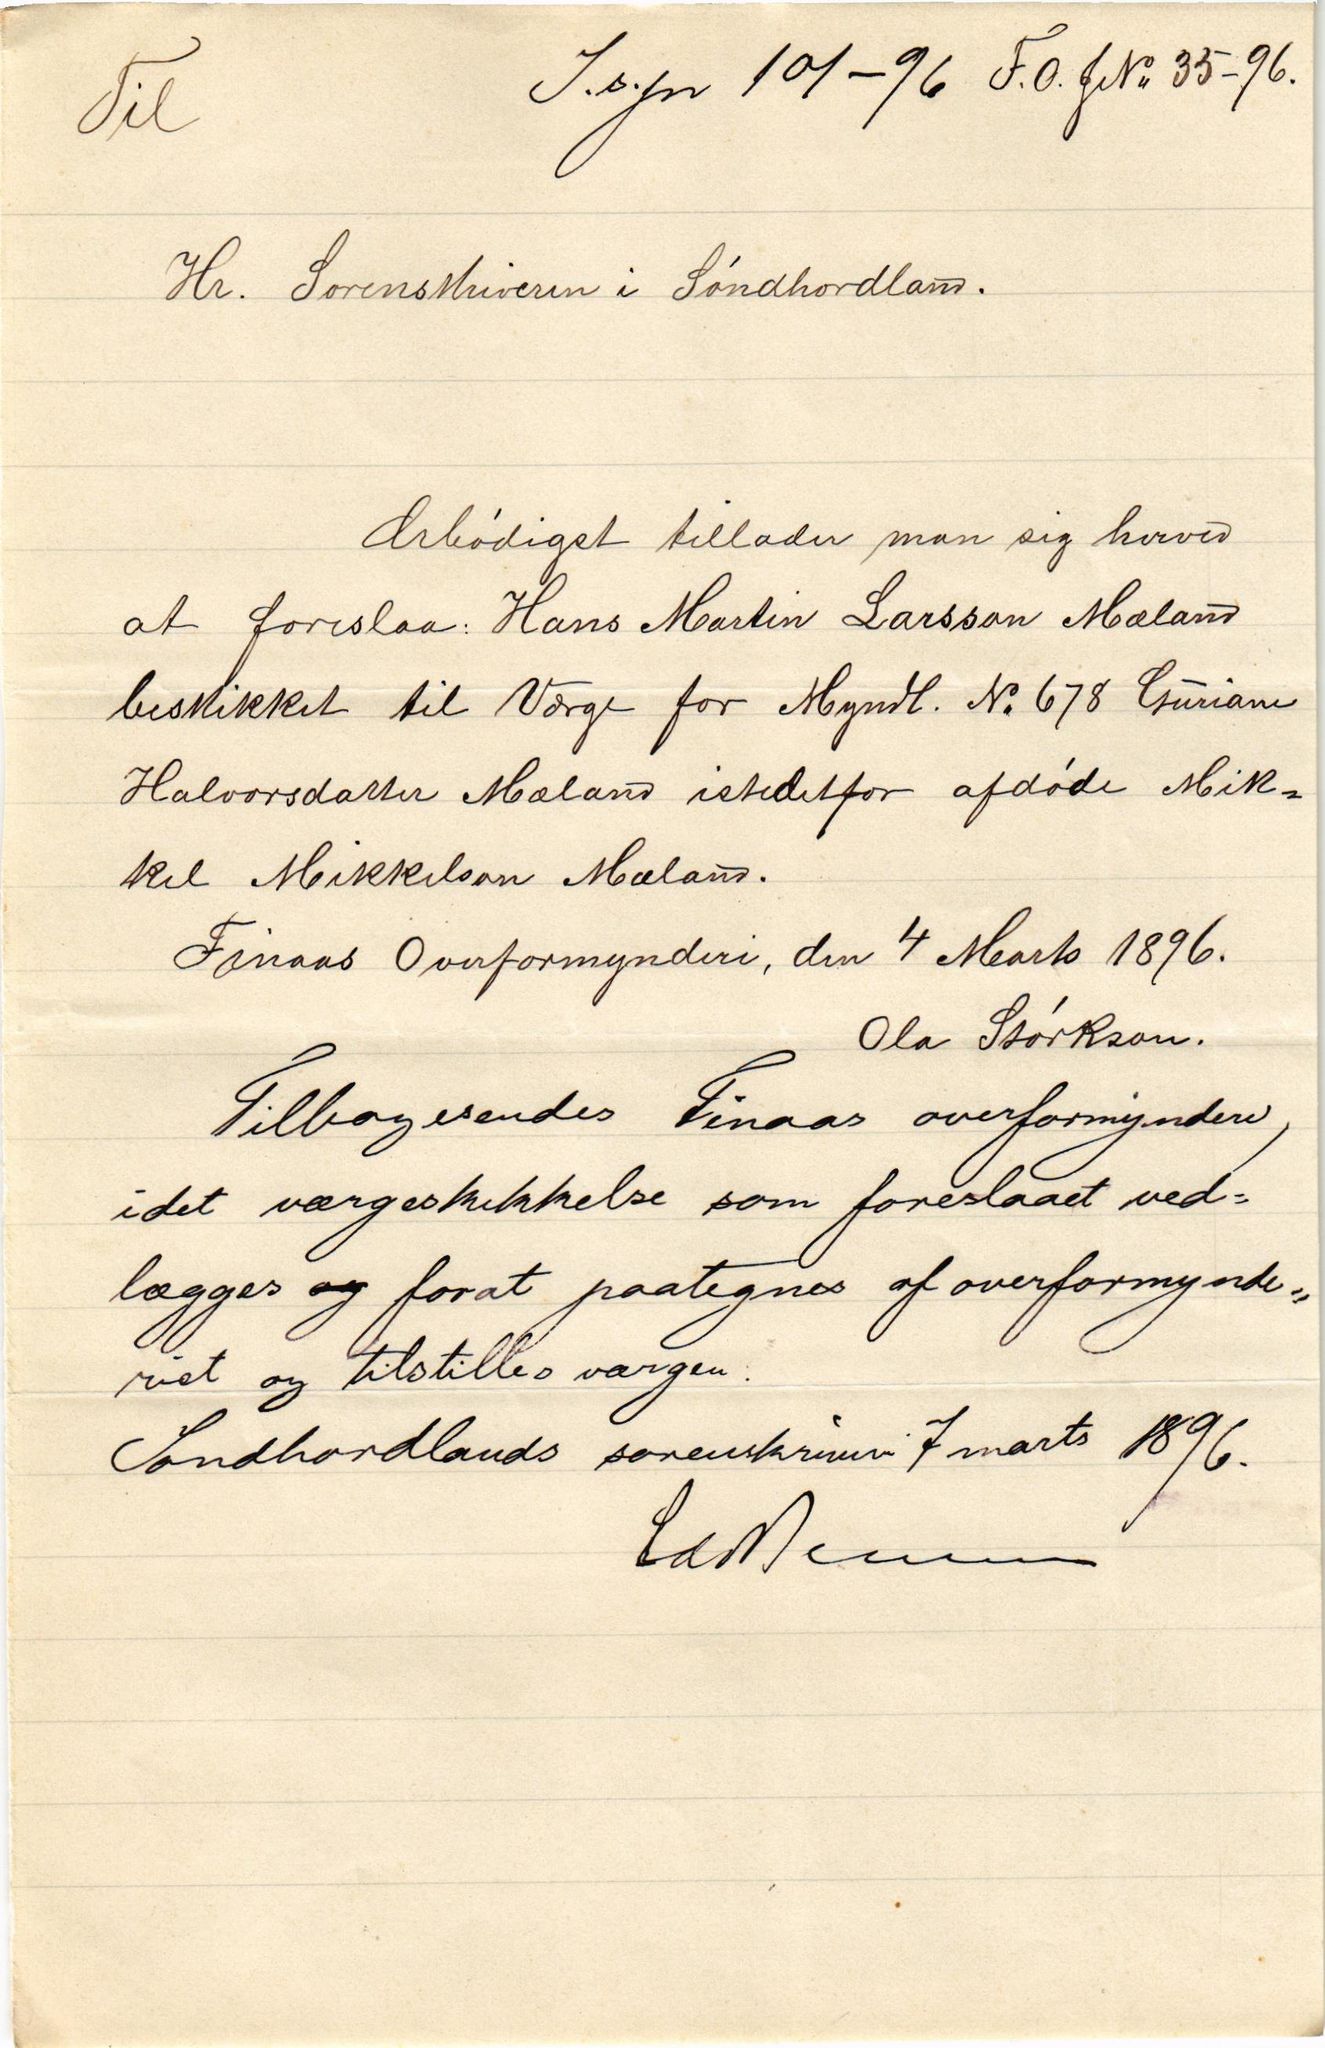 Til
S.s.jn 101-96 F.O. JNo 35-96.
Hr. Sorenskriveren i Söndhordland.
Ærbödigst tillader man sig herved
at foreslaa: Hans Martin Larsson Mæland
beskikket til Værge for Myndl. No 678 Guriane
Halvorsdatter Mæland istedetfor afdöde Mik=
kel Mikkelson Mæland.
Finaas Overformynderi, den 4 Marts 1896.
Ola Störkson.
Tilbagesendes Finaas overformynderi,
idet værgeskikkelse som foreslaaet ved=
lægges og forat paategnes af overformynde=
riet og tilstilles værgen.
Søndhordlands sorenskriveri 7 marts 1896.